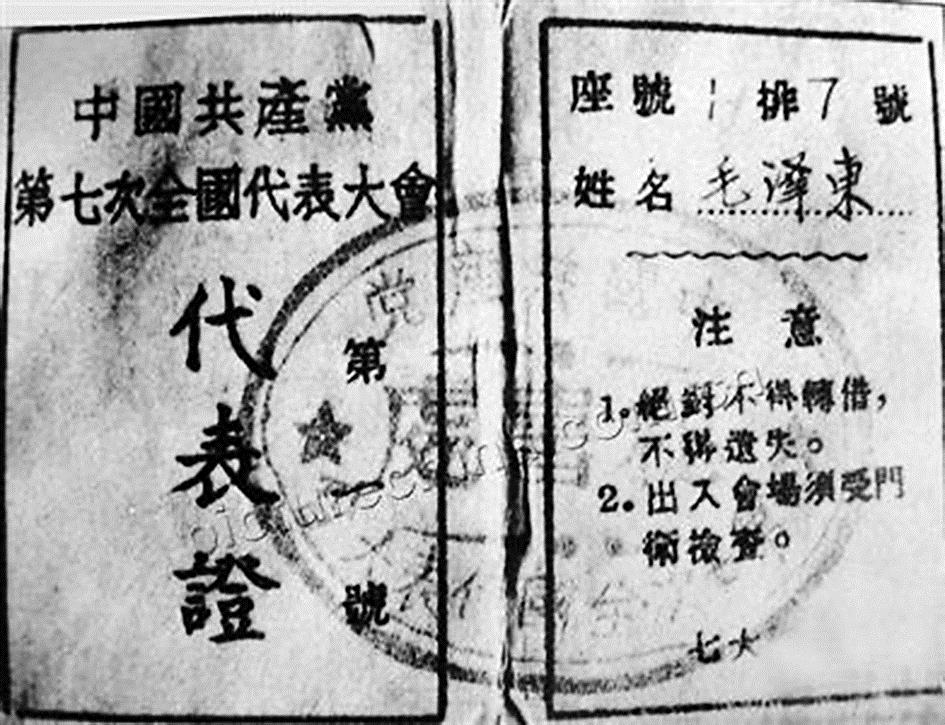 中國共產黨
第七次全國代表大會
代表證
第一號
座號1排7號
姓名毛澤東
注意
1。絕對不得轉借,
不得遺失。
2。出入會場須受門
衛檢查。
七大